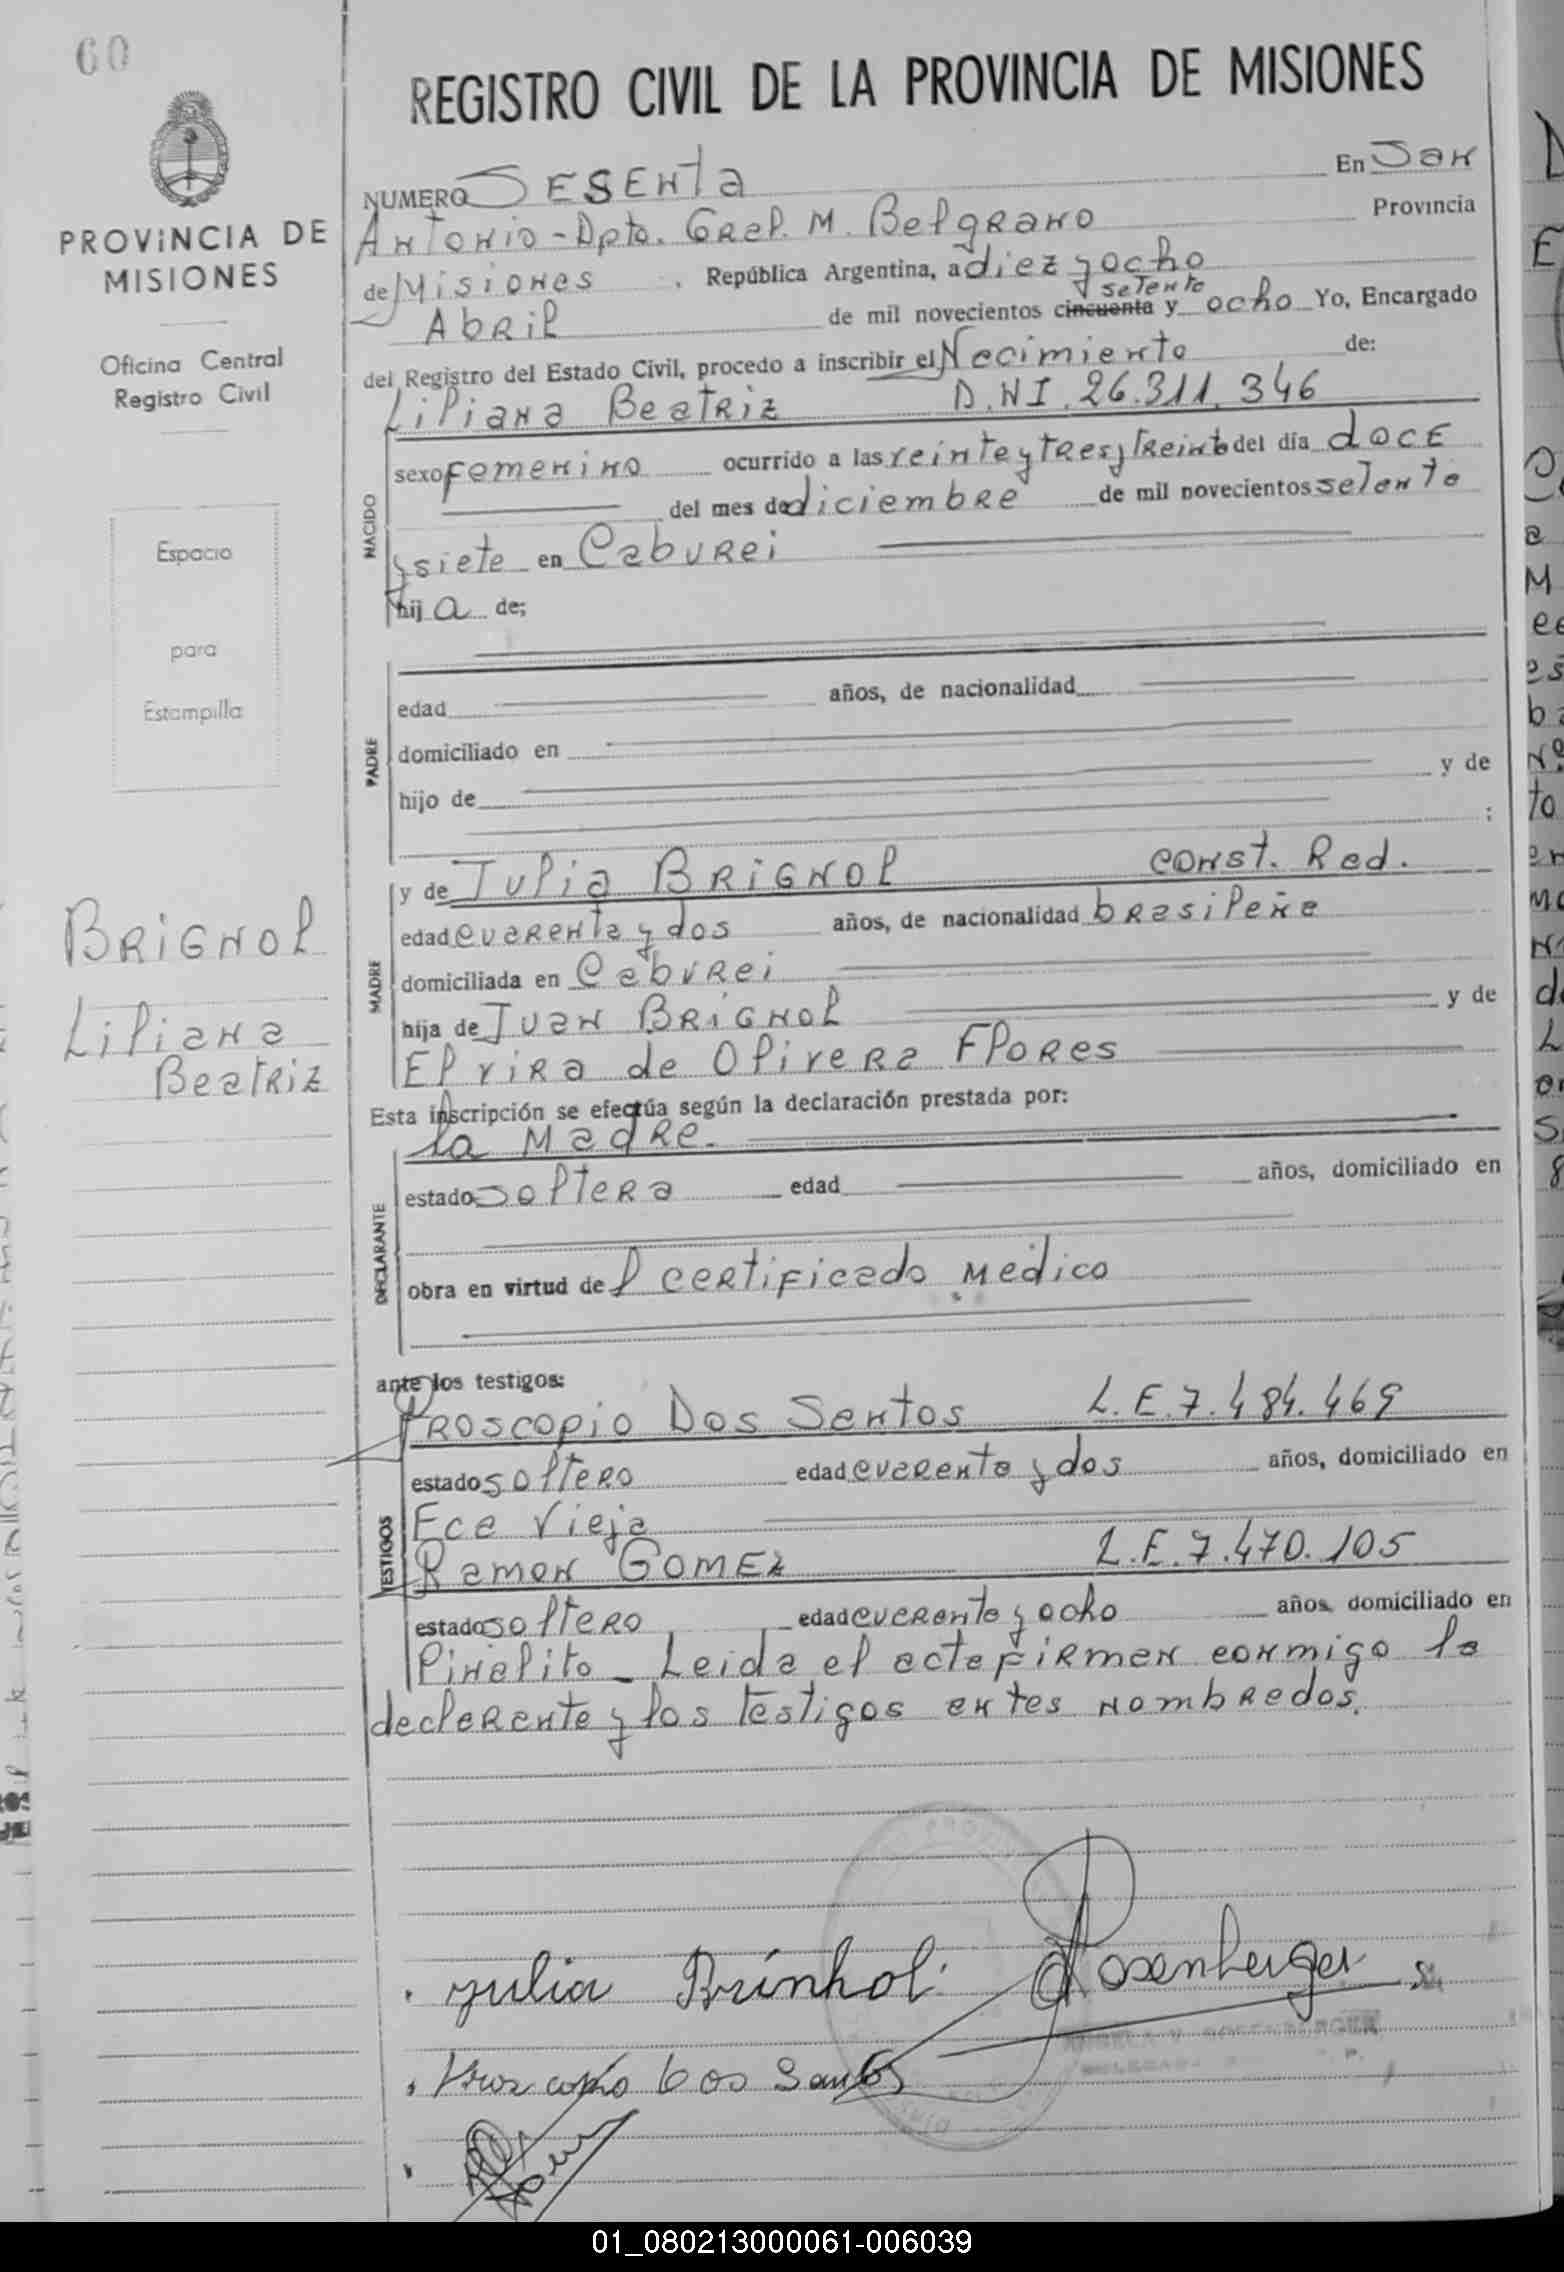 60
REGISTRO CIVIL DE LA PROVINCIA DE MISIONES
PROVINCIA DE
MISIONES
Oficina Central
Registro Civil
Espacio
para
Estampilla
BRIGNOL
Liliana
Beatriz
NUMERO SESENTA En San
Antonio - Dpto. Gral. M. Belgrano Provincia
de Misiones, República Argentina, a diez y ocho
setenta
Abril de mil novecientos cincuenta y ocho Yo, Encargado
del Registro del Estado Civil, procedo a inscribir el Nacimiento de:
Liliana Beatriz D.N.I. 26.311.346
NACIDO
sexo femenino ocurrido a las veinte y tres y treinta del día doce
del mes de diciembre de mil novecientos setenta
y siete en Caburei
hija de;
PADRE
edad años, de nacionalidad
domiciliado en
hijo de y de
;
MADRE
y de Julia BRIGNOL const. Red.
edad cuarenta y dos años, de nacionalidad brasileña
domiciliada en Caburei
hija de Juan BRIGNOL y de
Elvira de Olivera Flores
Esta inscripción se efectúa según la declaración prestada por:
la Madre.
DECLARANTE
estado soltera edad años, domiciliado en
obra en virtud del certificado Medico
ante los testigos:
TESTIGOS
Proscopio Dos Santos L.E. 7.484.469
estado soltero edad cuarenta y dos años, domiciliado en
Fca Vieja
Ramon GOMEZ L.E. 7.470.105
estado soltero edad cuarenta y ocho años domiciliado en
Piñalito - Leida el acta firman conmigo la
declarante y los testigos antes nombrados.
Julia Brinhol Rosenberger
ANGELA V. ROSENBERGER
Proscopio Dos Santos
01_080213000061-006039